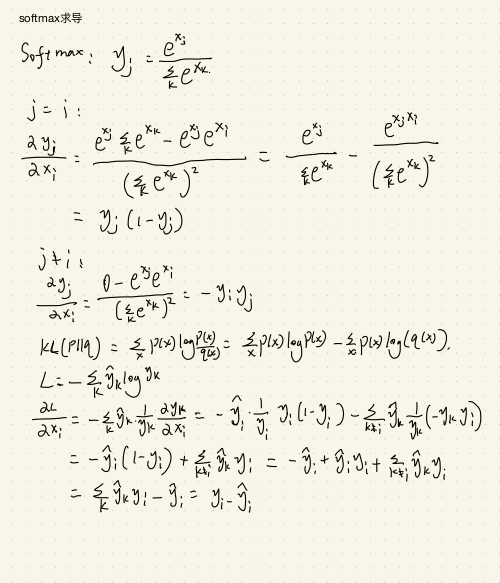 softmax求导
Softmax: y_j = e^{x_j} / Σ_k e^{x_k}.
j = i :
∂y_j/∂x_i = (e^{x_j} Σ_k e^{x_k} - e^{x_j} e^{x_i}) / (Σ_k e^{x_k})^2 = e^{x_j} / Σ_k e^{x_k} - e^{x_j x_i} / (Σ_k e^{x_k})^2
= y_j (1-y_j)
j ≠ i :
∂y_j/∂x_i = (0 - e^{x_j} e^{x_i}) / (Σ_k e^{x_k})^2 = - y_i y_j
KL(p||q) = Σ_x p(x) log p(x)/q(x) = Σ_x p(x) log p(x) - Σ_x p(x) log(q(x)).
L = - Σ_k ŷ_k log y_k
∂L/∂x_i = - Σ_k ŷ_k · 1/y_k ∂y_k/∂x_i = - ŷ_i · 1/y_i y_i (1-y_i) - Σ_{k≠i} ŷ_k 1/y_k (-y_k y_i)
= - ŷ_i (1-y_i) + Σ_{k≠i} ŷ_k y_i = - ŷ_i + ŷ_i y_i + Σ_{k≠i} ŷ_k y_i
= Σ_k ŷ_k y_i - ŷ_i = y_i - ŷ_i